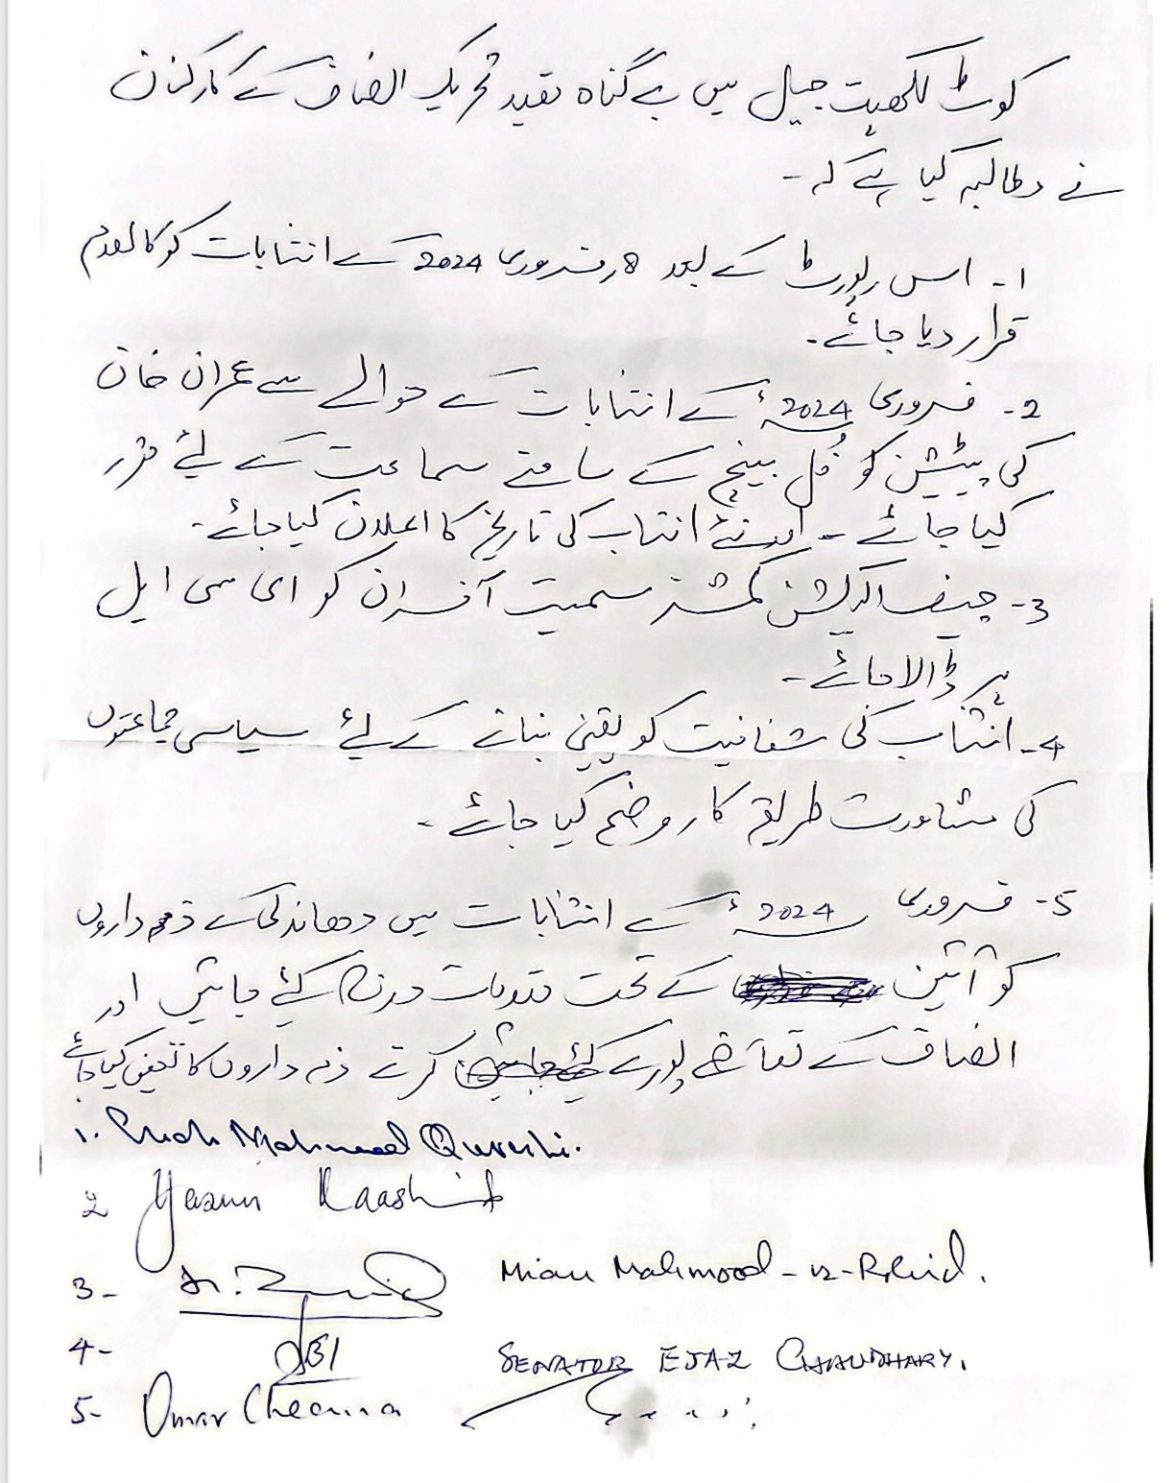 کوٹ لکھپت جیل میں بے گناہ مقید تحریک انصاف کے کارکنان
نے مطالبہ کیا ہے کہ ۔
1۔ اس رپورٹ کے بعد 8 فروری 2024 کے انتخابات کو کالعدم
قرار دیا جائے۔
2۔ فروری 2024ء کے انتخابات کے حوالے سے عمران خان
کی پیٹیشن کو فُل بینچ کے سامنے سماعت کے لئے مقرر
کیا جائے ۔ اور نئے انتخاب کی تاریخ کا اعلان کیا جائے۔
3۔ چیف الیکشن کمشنر سمیت آفسران کو ای سی ایل
پر ڈالا جائے ۔
4۔ انتخاب کی شفافیت کو یقینی بنانے کے لئے سیاسی جماعتوں
کی مشاورت طریقہ کار وضح کیا جائے ۔
5۔ فروری 2024ء کے انتخابات میں دھاندلی کے ذمہ داروں
کو آئین کے تحت مقدمات درج کئے جائیں اور
انصاف کے تقاضے پورے کئے جائیں کرتے ذمہ داروں کا تعین کیا جائے
1. Shah Mahmood Qureshi.
2 Yasmin Raashid
3- Mian Mahmood-ur-Rashid.
4- SENATOR EJAZ CHAUDHARY.
5- Omar Cheema